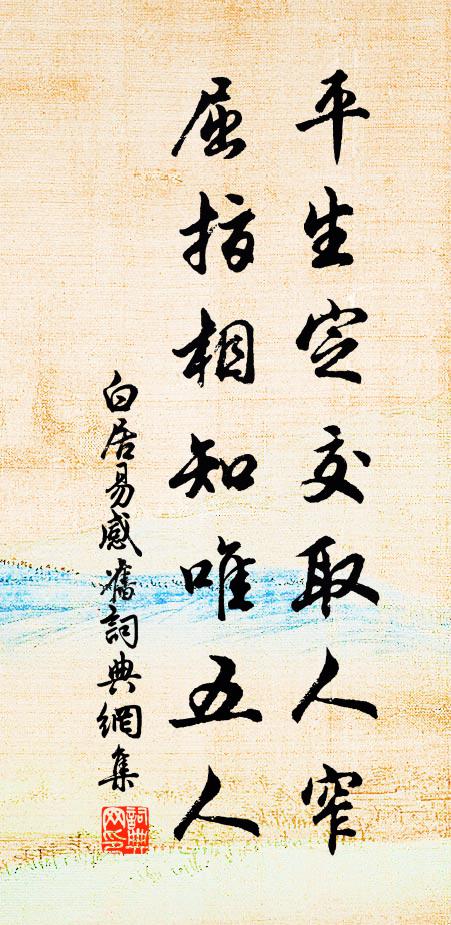 平生定交取人窄
屈指相知唯五人
白居易感舊詞典網集
詞典網印